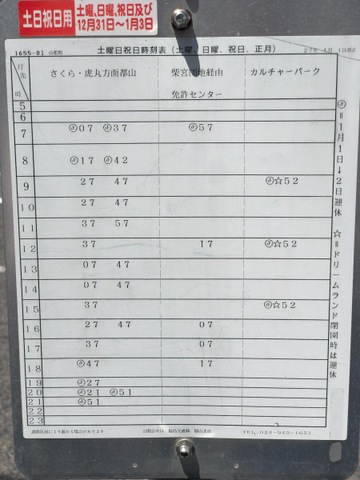 土日祝日用
土曜、日曜、祝日及び
12月31日～1月3日
1655-01
土曜日祝日時刻表（土曜、日曜、祝日、正月）
行先
時
さくら・虎丸方面郡山
柴宮団地経由
免許センター
カルチャーパーク
5
6
7 ㊣07 ㊣37 ㊣57
8 ㊣17 ㊣42
9 27 47 ㊣☆52
10 27 47
11 37 57
12 37 17 ㊣☆52
13 07 47
14 07 47
15 37 ㊣☆52
16 27 47 07
17 37 07
18 ㊣47 17
19 ㊣27
20 ㊣21 ㊣51
21 ㊣51
22
23
㊣＝1月1日→2日運休
☆＝ドリームランド閉園時は運休
道路状況により遅れる場合があります
TEL.024-943-1651